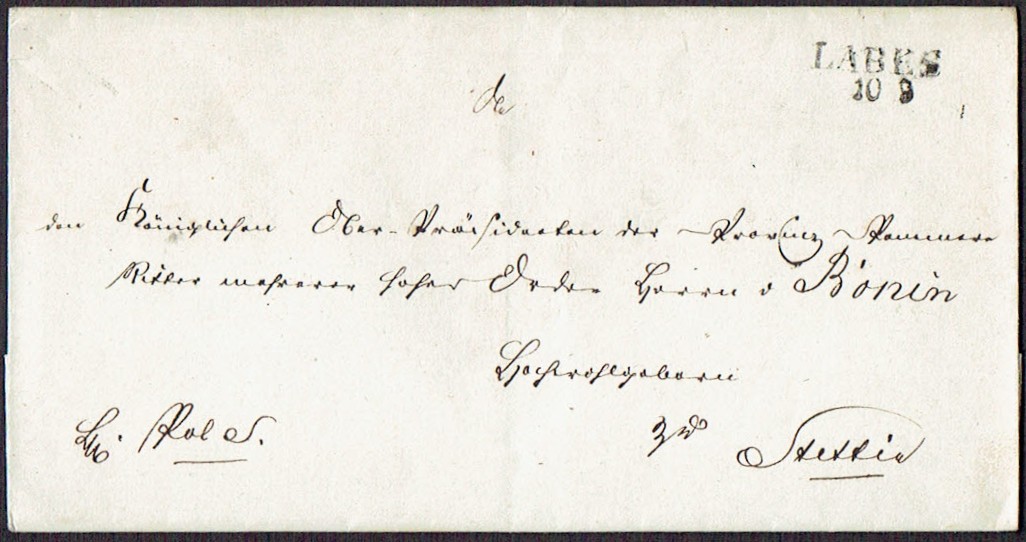 LABES
10 9
An
den Königlichen Ober-Präsidenten der Provinz Pommern
Ritter mehrerer hoher Orden Herrn v Bonin
Hochwohlgeborn
Pol S.
zu
Stettin